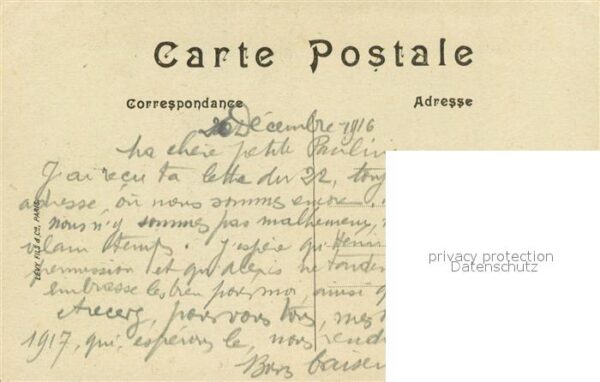 Carte Postale
Correspondance
Adresse
26 Décembre 1916
Ma chère petite Pauline
J'ai reçu ta lettre du 22, touj
adresse, où nous sommes encore
nous n'y sommes pas malheureux,
vilain temps. J'espère qu'Henri
permission et qu'Alexis ne tarder
embrasse les bien pour moi, ainsi q
pour vous tous, mes
1917, qui, espérons le, nous rend
Bons baiser
LEVY FILS & Cie, PARIS
privacy protection
Datenschutz